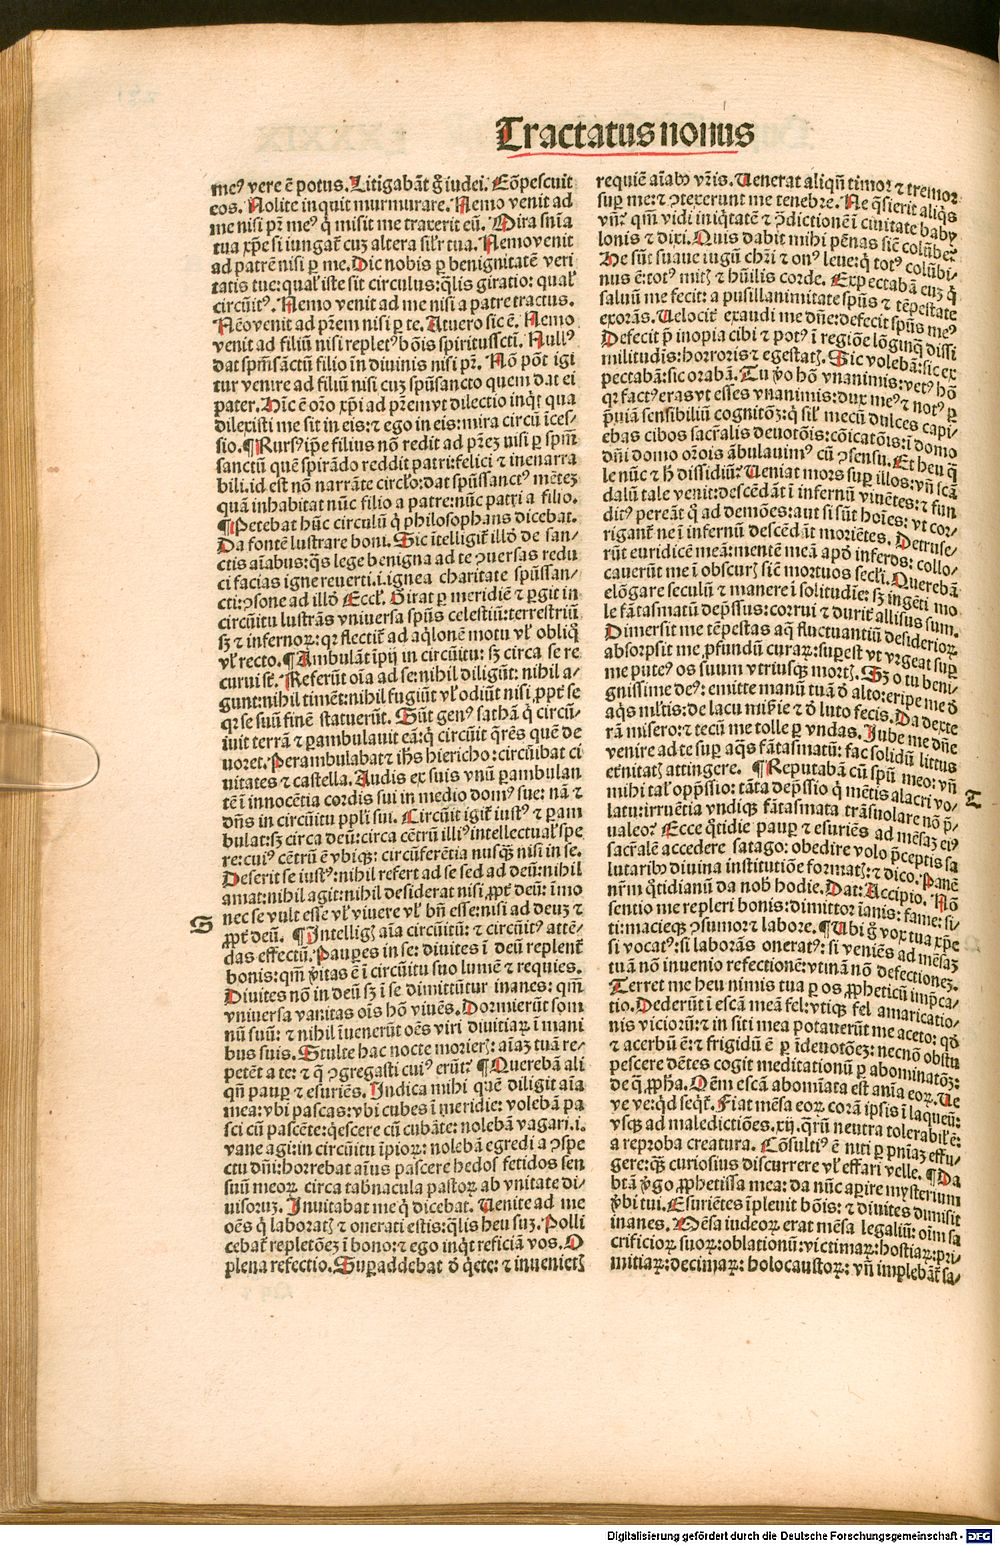 Tractatus nonus
meꝰ vere ē potus. Litigabāt g̊ iudei. Cōpescuit
eos. Nolite inquit murmurare. Nemo venit ad
me nisi pr̄ meꝰ q̇ misit me traxerit eū. Mira snīa
tua xp̄e si iungat̄ cuꝫ altera sil'r tua. Nemo venit
ad patrē nisi ꝑ me. Dic nobis ꝑ benignitatē veri
tatis tue: qual' iste sit circulus: q̄lis giratio: qual'
circūitꝰ. Nemo venit ad me nisi a patre tractus.
Nēo venit ad pr̄em nisi ꝑ te. At vero sic ē. Nemo
venit ad filiū nisi repletꝰ bōis spiritussctī. Nullꝰ
dat spm̄ sāctū filio in diuinis nisi pr̄. Nō pōt igi
tur venire ad filiū nisi cuꝫ spū sancto quem dat ei
pater. Hīc ē oro xp̄i ad pr̄em vt dilectio inq̇t qua
dilexisti me sit in eis: ⁊ ego in eis: mira circū īces/
sio. ¶ Rursꝰ ip̄e filius nō redit ad pr̄eꝫ nisi ꝑ spm̄
sanctū quē spirādo reddit patri: felici ⁊ inenarra
bili. id est nō narrāte circl'o: dat spūssanctꝰ mēteꝫ
quā inhabitat nūc filio a patre: nūc patri a filio.
¶ Petebat hūc circulū q̇ philosophans dicebat.
Da fontē lustrare boni. Sic ītelligit̄ illd̄ de san/
ctis aīabus: q̄s lege benigna ad te ꝯuersas redu
ci facias igne reuerti. i. ignea charitate spūssan/
cti: ꝯsone ad illd̄ Eccl'. Girat ꝑ meridiē ⁊ ꝑgit in
circūitu lustrās vniuersa spūs celestiū: terrestriū
sꝫ ⁊ infernoꝝ: qꝛ flectit̄ ad aq̇lonē motu vl' obliq̊
vl' recto. ¶ Ambulāt īpij in circūitu: sꝫ circa se re
curui st̄. Referūt oīa ad se: nihil diligūt: nihil a/
gunt: nihil timēt: nihil fugiūt vl' odiūt nisi ꝓpt̄ se
qꝛ se suū finē statuerūt. Sūt genꝰ sathā q̇ circū/
iuit terrā ⁊ ꝑambulauit eā: q̇ circūit q̄rēs quē de
uoret. Perambulabat ⁊ ih̄s hiericho: circūibat ci
uitates ⁊ castella. Audis ex suis vnū ꝑambulan
tē ī innocētia cordis sui in medio domꝰ sue: nā ⁊
dn̄s in circūitu ppl'i sui. Circūit igit̄ iustꝰ ⁊ ꝑam
bulat: sꝫ circa deū: circa cētrū illiꝰ intellectual' spe
re: cuiꝰ cētrū ē vbiqꝫ: circūferētia nusqꝫ nisi in se.
Deserit se iustꝰ: nihil refert ad se sed ad deū: nihil
amat: nihil agit: nihil desiderat nisi ꝓpt̄ deū: īmo
nec se vult esse vl' viuere vl' bn̄ esse: nisi ad deuꝫ ⁊
S
ꝓpt̄ deū. ¶ Intelligꝫ aīa circūitū: ⁊ circūitꝰ attē/
das effectū. Pauꝑes in se: diuites ī deū replent̄
bonis: qm̄ v̇itas ē ī circūitu suo lumē ⁊ requies.
Diuites nō in deū sꝫ ī se dimittūtur inanes: qm̄
vniuersa vanitas oīs hō viuēs. Dormierūt som
nū suū: ⁊ nihil īuenerūt oēs viri diuitiaꝝ ī mani
bus suis. Stulte hac nocte morierꝫ: aīaꝫ tuā re/
petēt a te: ⁊ q̄ ꝯgregasti cuiꝰ erūt? ¶ Querebā ali
qn̄ pauꝑ ⁊ esuriēs. Indica mihi quē diligit aīa
mea: vbi pascas: vbi cubes ī meridie: volebā pa
sci cū pascēte: q̇escere cū cubāte: nolebā vagari. i.
vane agi: in circūitu īpioꝝ: nolebā egredi a ꝯspe
ctu dn̄i: horrebat aīus pascere hedos fetidos sen
suū meoꝝ circa tab̄nacula pastoꝝ ab vnitate di/
uisoruꝫ. Inuitabat me q̇ dicebat. Uenite ad me
oēs q̇ laboratꝫ ⁊ onerati estis: q̄lis heu suꝫ. Polli
cebat̄ repletōeꝫ ī bono: ⁊ ego inq̇t reficiā vos. O
plena refectio. Suꝑaddebat d̄ q̇ete: ⁊ inuenietꝫ
requiē aīabꝫ vr̄is. Uenerat aliqn̄ timor ⁊ tremor
suꝑ me: ⁊ ꝯtexerunt me tenebre. Ne q̄sierit aliq̇s
vn̄? qm̄ vidi iniq̇tatē ⁊ ꝯdictionē ī ciuitate baby
lonis ⁊ dixi. Quis dabit mihi pēnas sic̄ colūbe?
He sūt suaue iugū chr̄i ⁊ onꝰ leue: q̇ totꝰ colūbi/
nus ē: totꝰ mitꝫ ⁊ hūilis corde. Expectabā euꝫ q̇
saluū me fecit: a pusillanimitate spūs ⁊ tēpestate
exorās. Uelocit̄ exaudi me dn̄e: defecit spūs meꝰ
Defecit p̄ inopia cibi ⁊ potꝰ ī regiōe lōginq̄ dissi
militudis: horroris ⁊ egestatꝫ. Sic volebā: sic ex
pectabā: sic orabā. Tu v̇o hō vnanimis: vetꝰ hō
qꝛ factꝰ eras vt esses vnanimis: dux meꝰ ⁊ notꝰ ꝑ
p̄uiā sensibiliū cognitōꝫ: q̇ sil' mecū dulces capi/
ebas cibos sacr̄alis deuotōis: cōicatōis: ī domo
dn̄i domo orōis ābulauimꝰ cū ꝯsensu. Et heu q̄
le nūc ⁊ h̄ dissidiū? Ueniat mors suꝑ illos: vn̄ scā
dalū tale venit: descēdāt ī infernū viuētes: ⁊ fun
ditꝰ pereāt q̇ ad demōes: aut si sūt hoīes: vt cor/
rigant̄ ne ī infernū descēdāt moriētes. Detruse/
rūt euridicē meā: mentē meā apd̄ inferos: collo/
cauerūt me ī obscurꝫ sic̄ mortuos secl'i. Querebā
elōgare seculū ⁊ manere ī solitudīe: sꝫ ingēti mo
le fātasmatū dep̄ssus: corrui ⁊ durit̄ allisus sum.
Dimersit me tēpestas aq̄ fluctuantiū desiderioꝝ
absorpsit me ꝓfundū curaꝝ: suꝑest vt vrgeat suꝑ
me puteꝰ os suum vtriusqꝫ mortꝫ. Sꝫ o tu beni/
gnissime deꝰ: emitte manū tuā d̄ alto: eripe me d̄
aq̇s ml'tis: de lacu mis̄ie ⁊ d̄ luto fecis. Da dexte
rā misero: ⁊ tecū me tolle ꝑ vndas. Iube me dn̄e
venire ad te suꝑ aq̄s fātasmatū: fac solidū littus
et̄nitatꝫ attingere. ¶ Reputabā cū spū meo: vn̄
T
mihi tal' opp̄ssio: tāta dep̄ssio q̇ mētis alacri vo/
latu: irruētia vndiqꝫ fātasmata trāsuolare nō p̄/
ualeo? Ecce q̇tidie pauꝑ ⁊ esuriēs ad mēsaꝫ eiꝰ
sacr̄alē accedere satago: obedire volo p̄ceptis sa
lutaribꝫ diuina institutiōe formatꝫ: ⁊ dico. Panē
nr̄m q̇tidianū da nob̄ hodie. Dat: Accipio. Nō
sentio me repleri bonis: dimittor īanis: fame: si/
ti: macieqꝫ ꝯsumor ⁊ labore. ¶ Ubi g̊ vox tua xp̄e
si vocatꝰ: si laborās oneratꝰ: si veniēs ad mēsaꝫ
tuā nō inuenio refectionē: vtinā nō defectioneꝫ.
Terret me heu nimis tua ꝑ os ꝓpheticū imp̄ca/
tio. Dederūt ī escā meā fel: vtiqꝫ fel amaricatio/
nis viciorū: ⁊ in siti mea potauerūt me aceto: qd̄
⁊ acerbū ē: ⁊ frigidū ē ꝑ īdeuotōeꝫ: necnō obstu
pescere dētes cogit meditationū ꝑ abominatōꝫ:
de q̄ ꝓph̄a. Oēm escā abomīata est anīa eoꝝ. Ue
ve ve: qd̄ seq̇t̄. Fiat mēsa eoꝝ corā ipsis ī laqueū:
vsqꝫ ad maledictiōes. xij. q̄rū neutra tolerabil' ē:
a reproba creatura. Cōsultiꝰ ē niti ꝑ pn̄iaꝫ effu/
gere: qꝫ curiosius discurrere vl' effari velle. ¶ Da
btā v̇go ꝓphetissa mea: da nūc aꝑire mysterium
v̇bi tui. Esuriētes īpleuit bōis: ⁊ diuites dimisit
inanes. Mēsa iudeoꝝ erat mēsa legaliū: oīm sa
crificioꝝ suoꝝ: oblationū: victimaꝝ: hostiaꝝ: pri/
mitiaꝝ: decimaꝝ: holocaustoꝝ: vn̄ implebāt̄ sa/
Digitalisierung gefördert durch die Deutsche Forschungsgemeinschaft - DFG